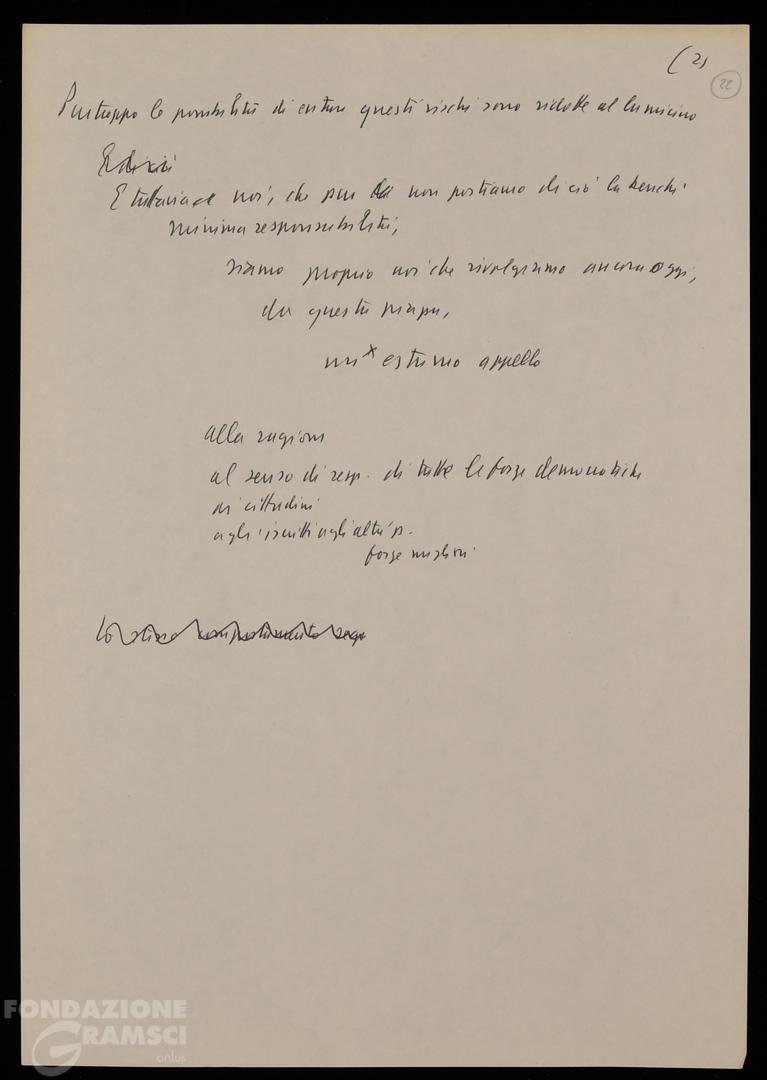 (2)
22
Purtroppo le possibilità di evitare questi rischi sono ridotte al lumicino
E tuttavia noi, che pur non portiamo di ciò la benché
minima responsabilità,
siamo proprio noi che rivolgiamo ancora oggi,
da questa piazza,
un estremo appello
alla ragione
al senso di resp. di tutte le forze democratiche
ai cittadini
agli iscritti agli altri p.
forze migliori
Lo stesso
FONDAZIONE
GRAMSCI
onlus